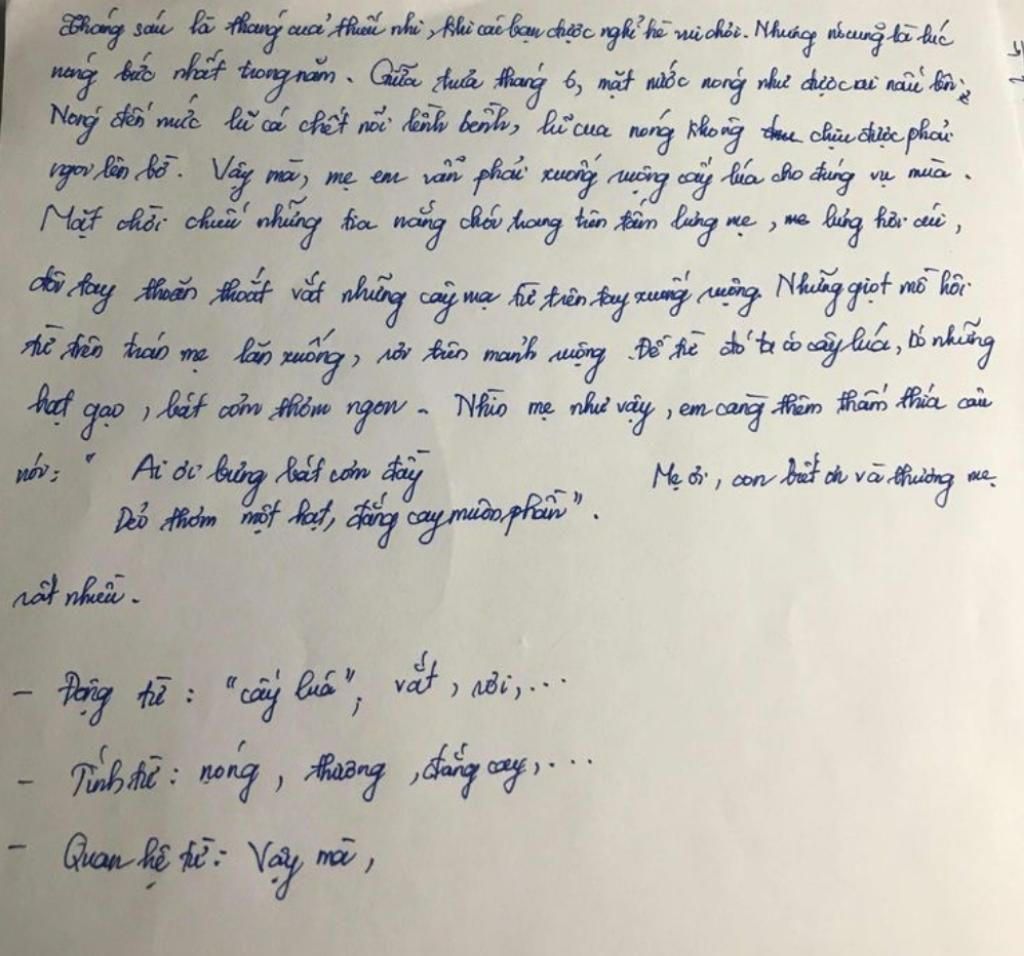 Tháng sáu là tháng của thiếu nhi, khi các bạn được nghỉ hè vui chơi. Nhưng nó cũng là lúc
nóng bức nhất trong năm. Giữa trưa tháng 6, mặt nước nóng như được ai nấu lên.
Nóng đến mức lũ cá chết nổi lềnh bềnh, lũ cua nóng không chịu được phải
ngoi lên bờ. Vậy mà, mẹ em vẫn phải xuống ruộng cấy lúa cho đúng vụ mùa.
Mặt trời chiếu những tia nắng chói trang trên tấm lưng mẹ, mẹ lưng hơi cúi,
đôi tay thoăn thoắt vắt những cây mạ từ trên tay xuống ruộng. Những giọt mồ hôi
từ trên trán mẹ lăn xuống, rơi trên mảnh ruộng. Để từ đó ta có cây lúa, có những
hạt gạo, bát cơm thơm ngon. Nhìn mẹ như vậy, em càng thêm thấm thía câu
nói: " Ai ơi bưng bát cơm đầy
Dẻo thơm một hạt, đắng cay muôn phần".
Mẹ ơi, con biết ơn và thương mẹ
rất nhiều.
- Động từ: "cấy lúa", vắt, rơi,...
- Tính từ: nóng, thương, đắng cay,...
- Quan hệ từ: Vậy mà,